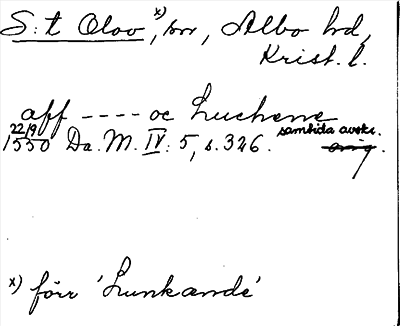 S:t Olov, x) sn, Albo hd,
Krist. l.
aff ---- oc Luchene
22/9 samtida avskr.
1550 Da. M. IV: 5, s. 326. orig.
x) förr 'Lunkande'